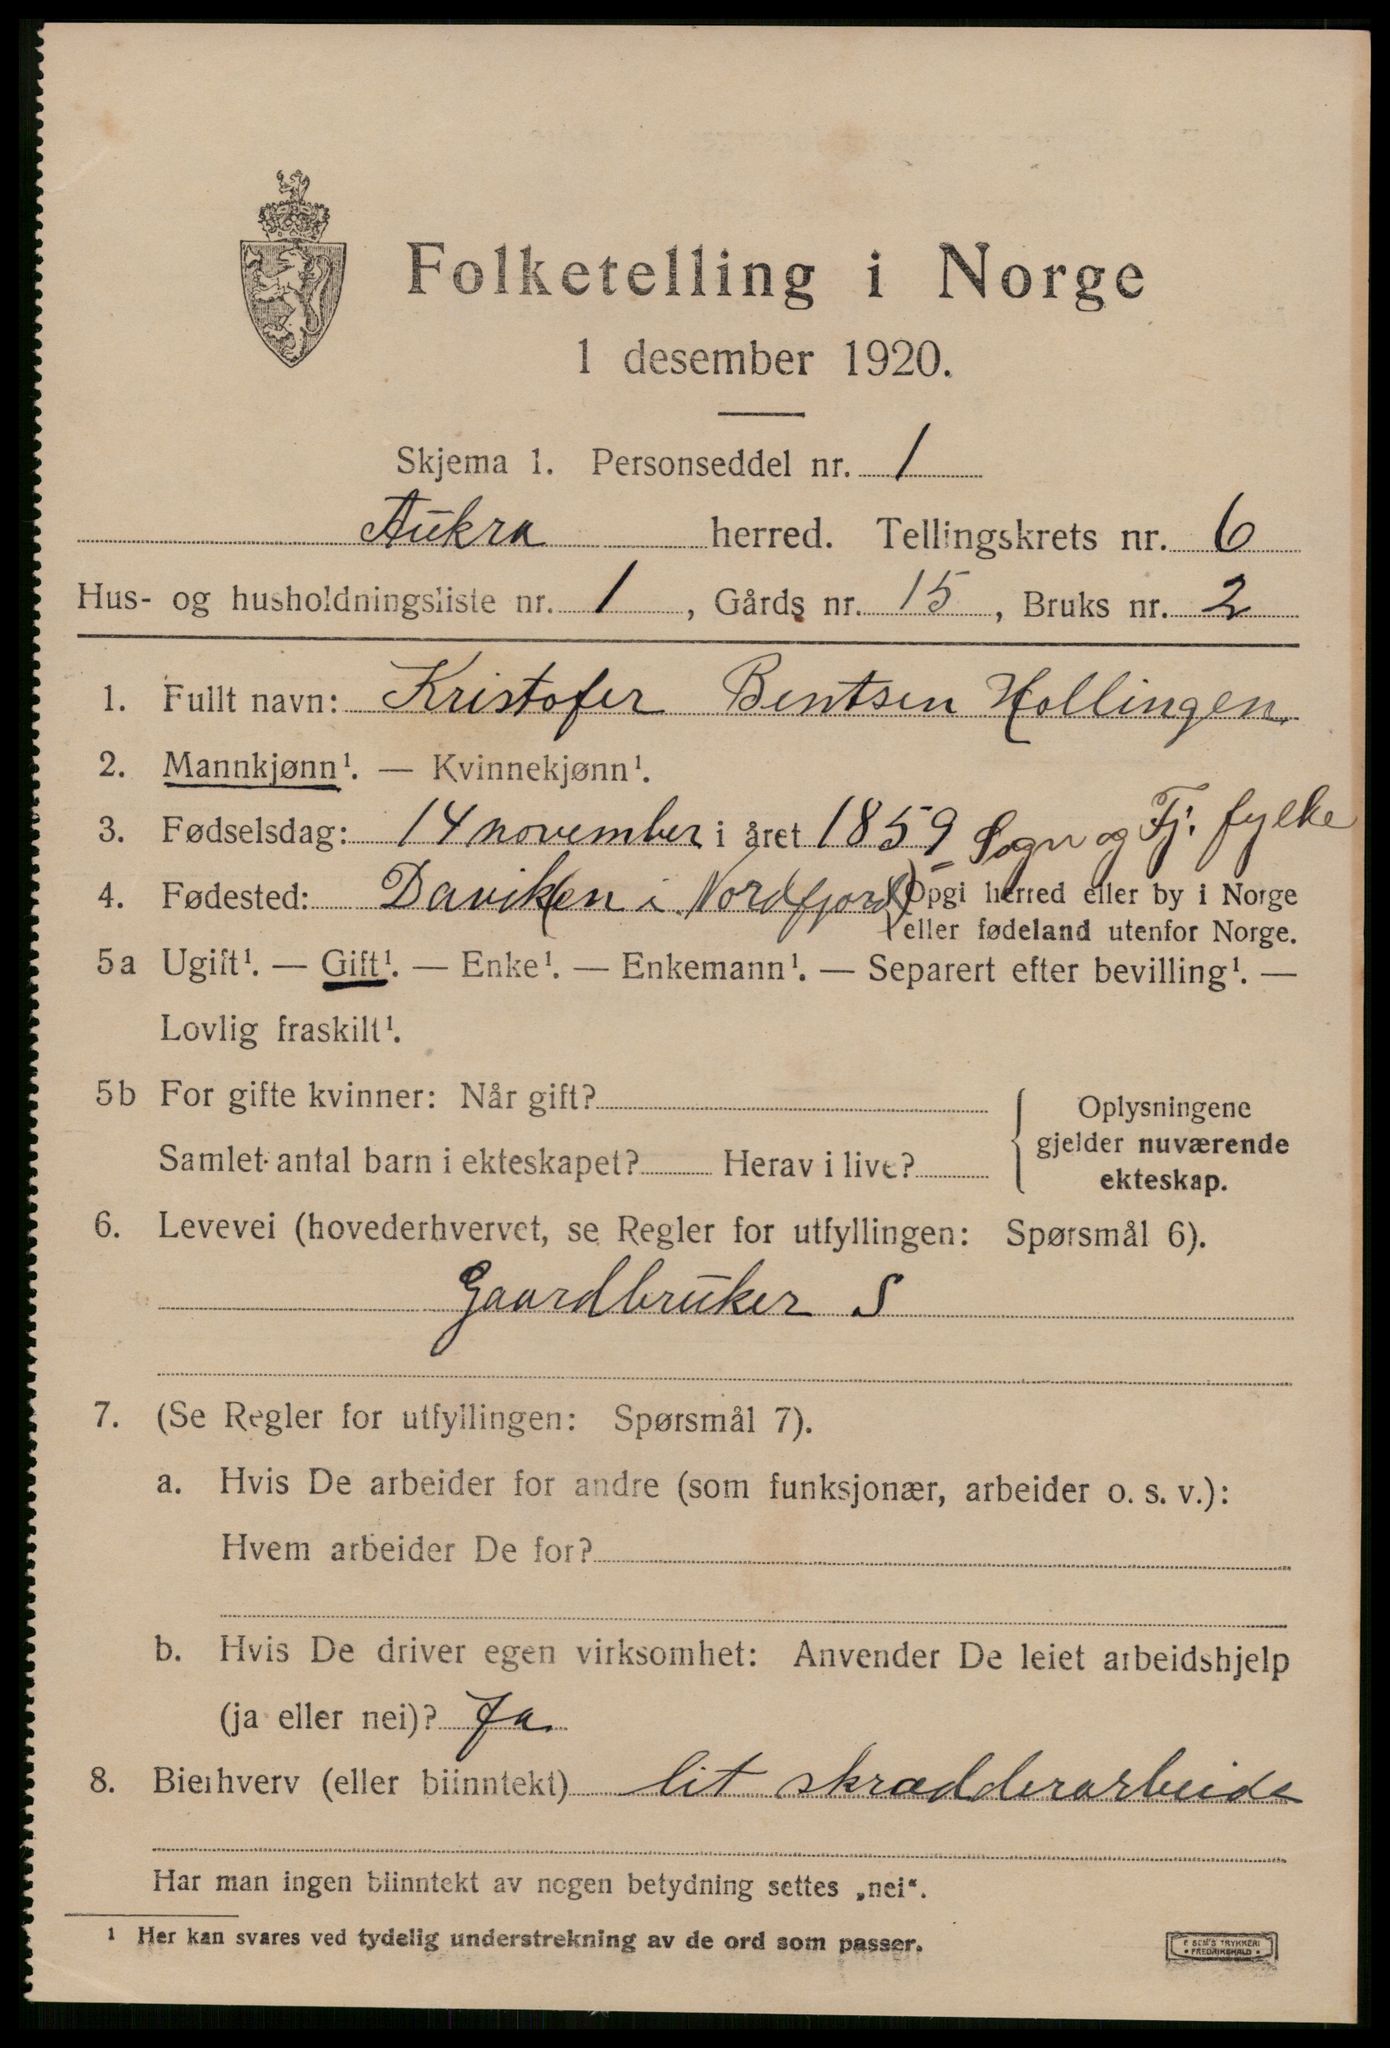 Folketelling i Norge
1 desember 1920.
Skjema 1. Personseddel nr. 1
Aukra herred. Tellingskrets nr. 6
Hus- og husholdningsliste nr. 1, Gårds nr. 15, Bruks nr. 2
1. Fullt navn: Kristofer Bentsen Hollingen.
2. Mannkjønn¹. — Kvinnekjønn¹.
3. Fødselsdag: 14 november i året 1859 Sogn og Fj. fylke
4. Fødested: Davik(en i Nordfjord) (Opgi herred eller by i Norge
eller fødeland utenfor Norge.
5a Ugift¹. — Gift¹. — Enke¹. — Enkemann¹. — Separert efter bevilling¹. —
Lovlig fraskilt¹.
5b For gifte kvinner: Når gift?
Samlet antal barn i ekteskapet? Herav i live?
Oplysningene
gjelder nuværende
ekteskap.
6. Levevei (hovederhvervet, se Regler for utfyllingen: Spørsmål 6).
Gaardbruker S
7. (Se Regler for utfyllingen: Spørsmål 7).
a. Hvis De arbeider for andre (som funksjonær, arbeider o. s. v.):
Hvem arbeider De for?
b. Hvis De driver egen virksomhet: Anvender De leiet arbeidshjelp
(ja eller nei)? Ja
8. Bierhverv (eller biinntekt) lit skrædderarbeide
Har man ingen biinntekt av nogen betydning settes „nei".
¹ Her kan svares ved tydelig understrekning av de ord som passer.
E SEM'S TRYKKERI
• FREDRIKSHALD •